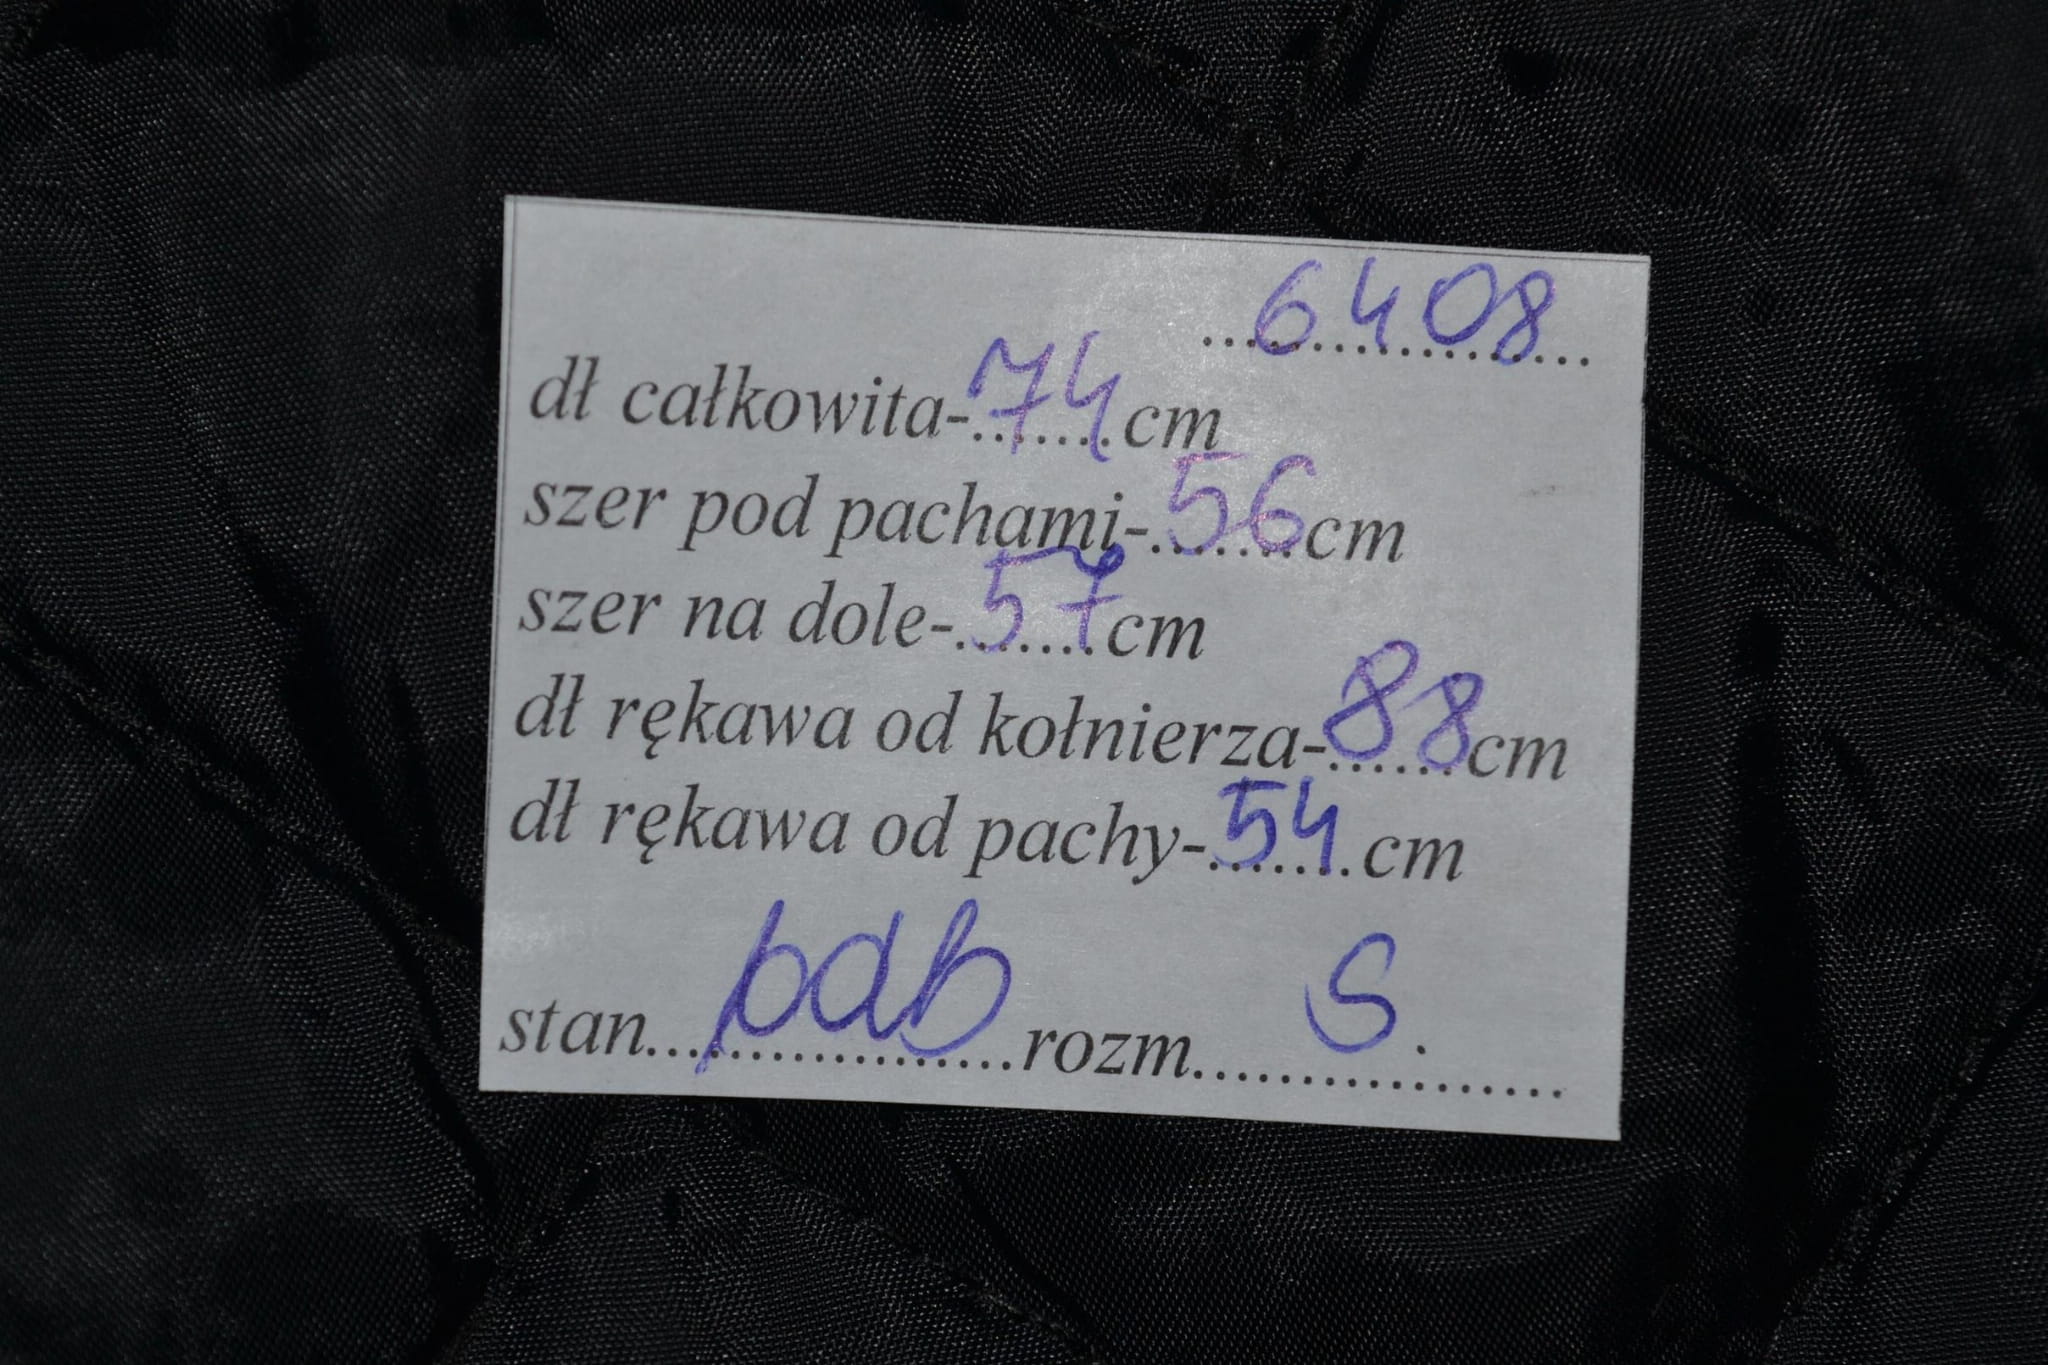 6408
dł całkowita-74 cm
szer pod pachami-56 cm
szer na dole-57 cm
dł rękawa od kołnierza-88 cm
dł rękawa od pachy-54 cm
stan.................rozm. S.